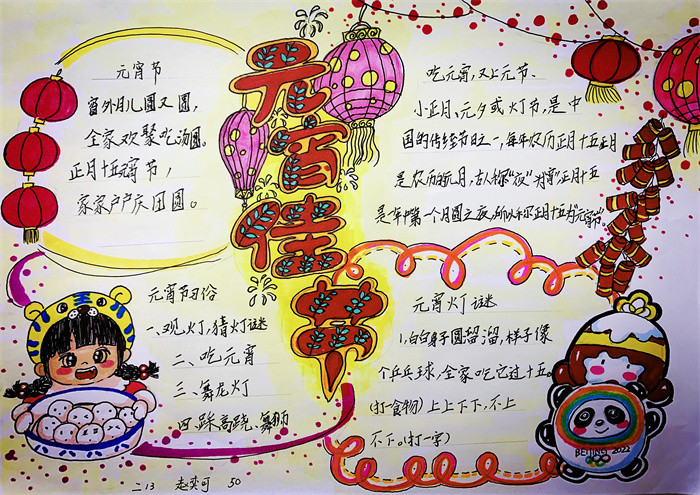 元宵佳节
元宵节
窗外月儿圆又圆,
全家欢聚吃汤圆。
正月十五宵节,
家家户户庆团圆。
吃元宵,又上元节、
小正月、元夕或灯节,是中
国的传统节日之一,每年农历正月十五正月
是农历的元月,古人称"夜"为"宵"正月十五
是一年中第一个月圆之夜,所以称正月十五为"元宵节"
元宵节习俗
一、观灯,猜灯谜
二、吃元宵
三、舞龙灯
四、踩高跷、舞狮
元宵灯谜
1,白白身子圆留溜,样子像
个乒乓球,全家吃它过十五。
(打一食物)上上下下,不上
不下。(打一字)
BEIJING 2022
二13 赵奕可 50